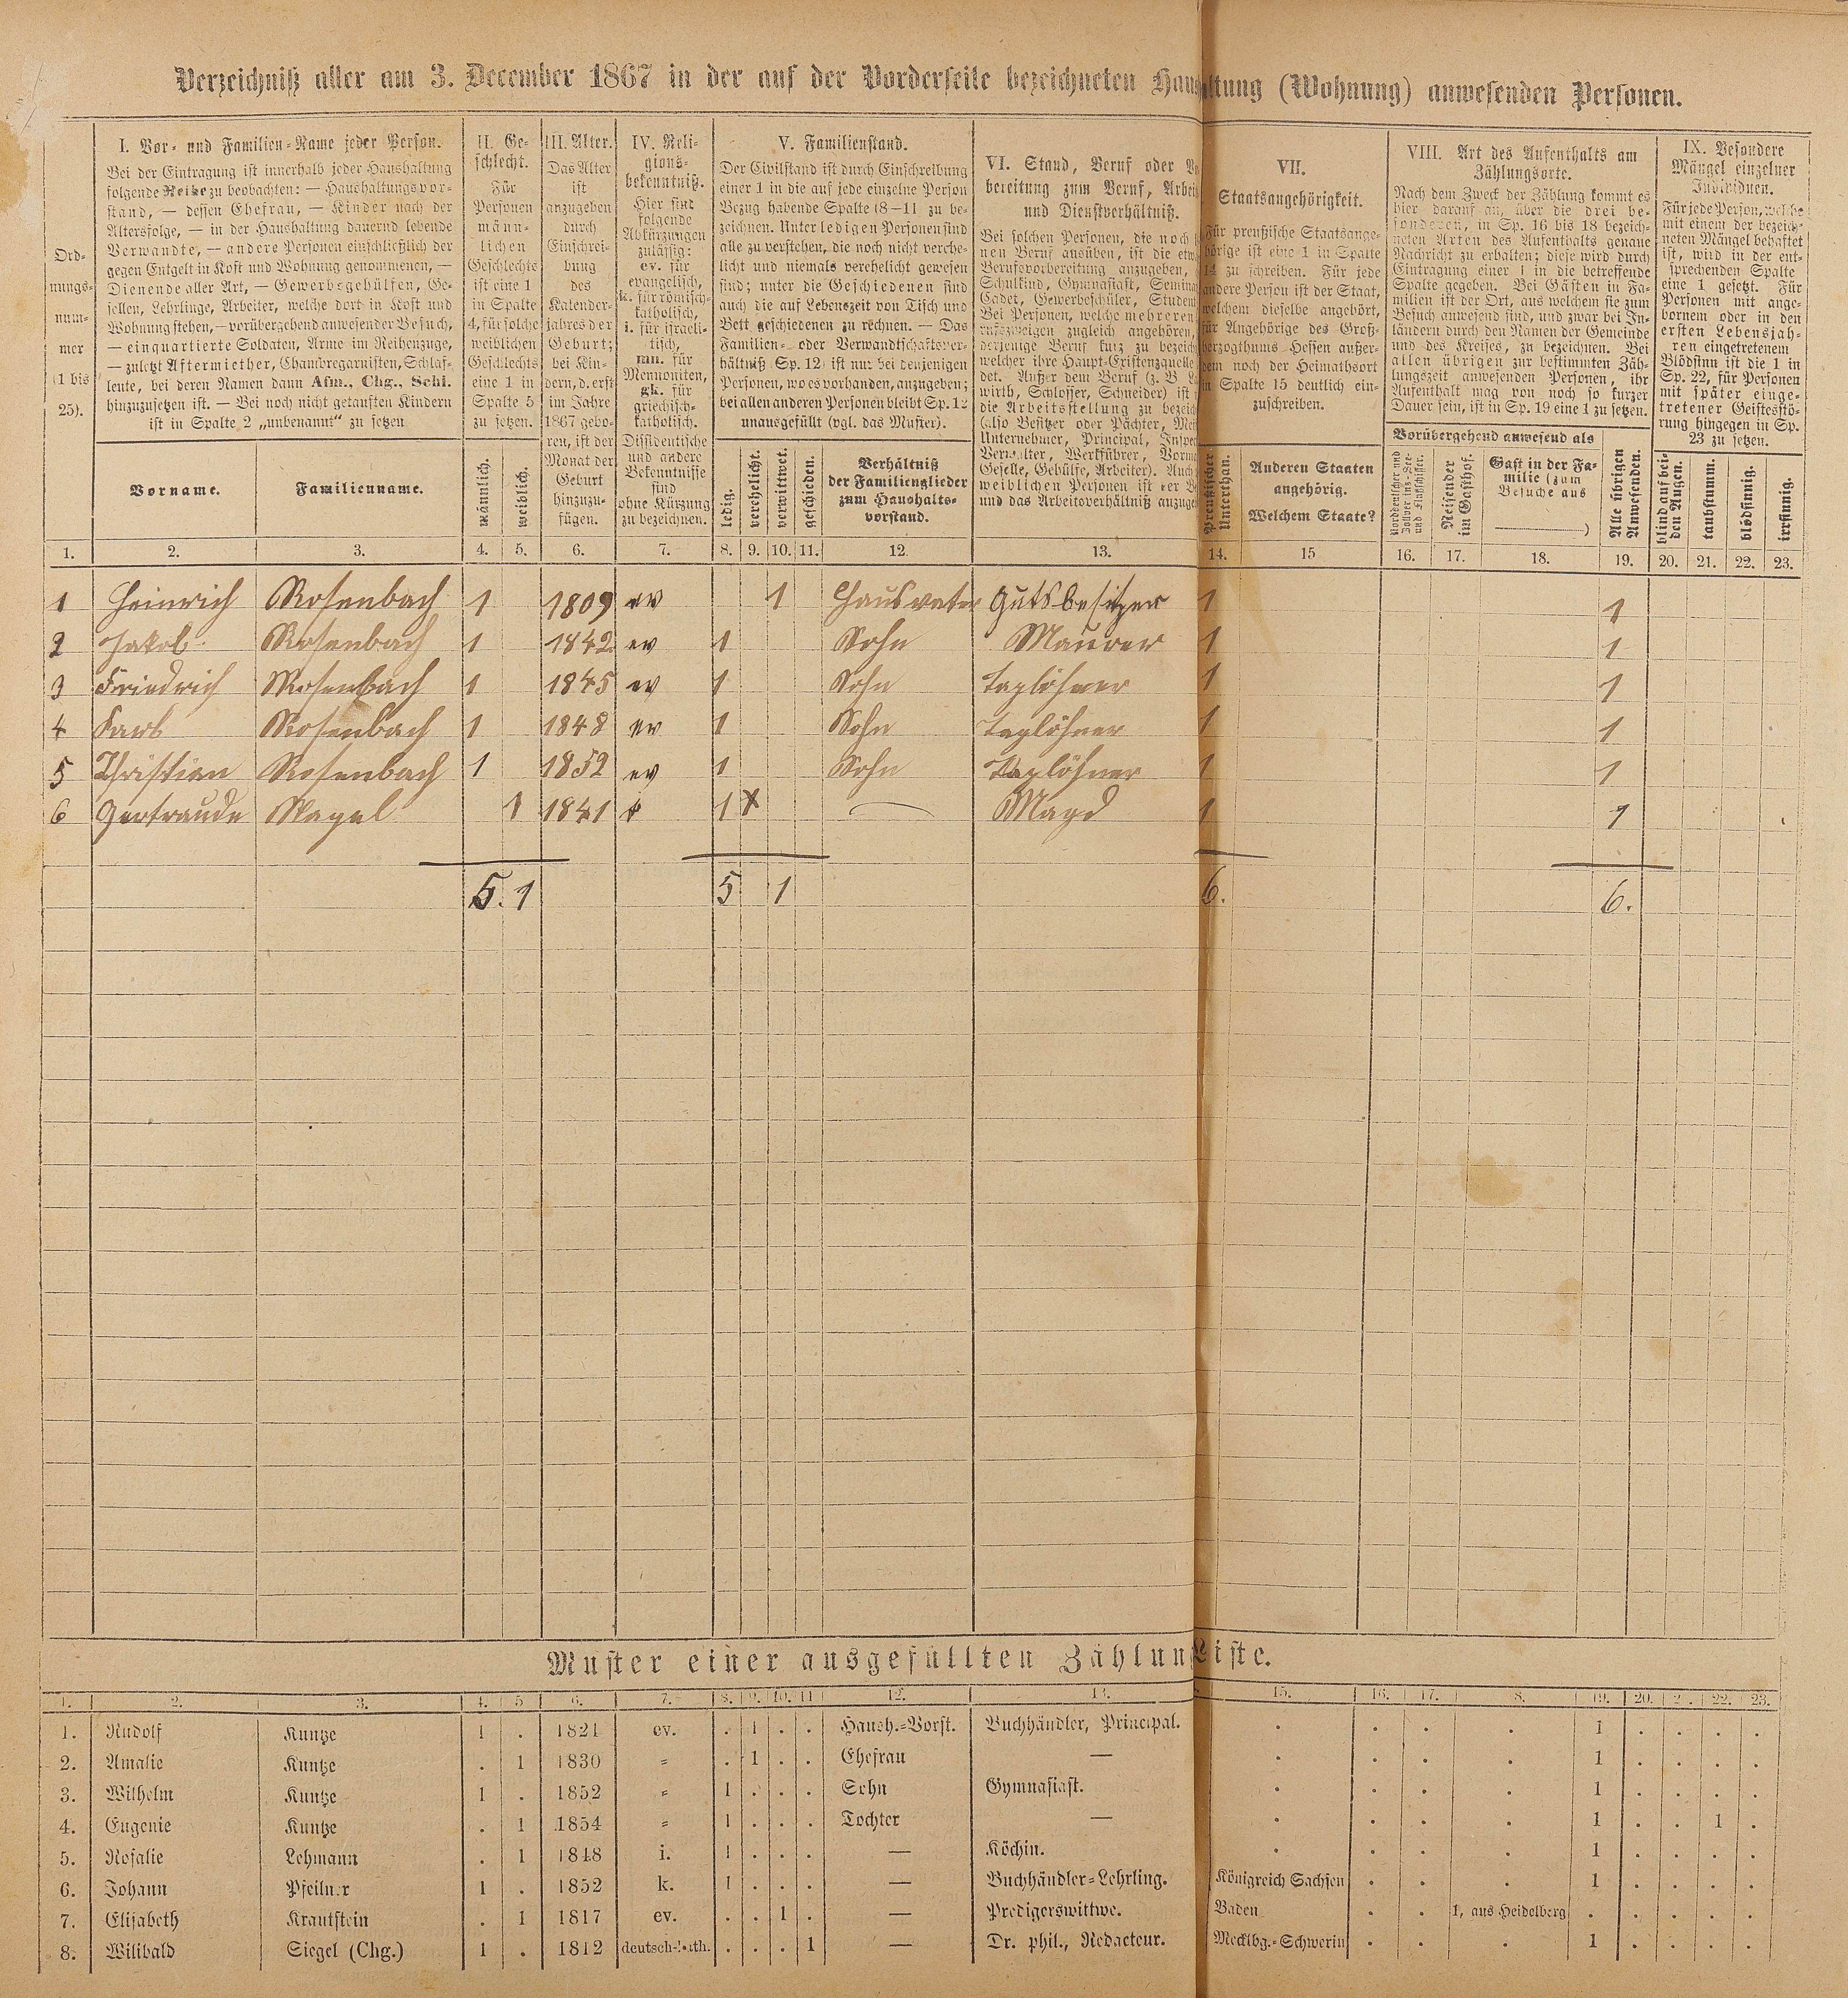 Verzeichniß aller am 3. December 1867 in der auf der Vorderseite bezeichneten Haus ltung (Wohnung) anwesenden Personen.
Ord-
nungs-
num-
mer
(1 bis
25).
I. Vor- und Familien-Name jeder Person.
Bei der Eintragung ist innerhalb jeder Haushaltung
folgende Reihe zu beobachten: — Haushaltungsvor-
stand, — dessen Ehefrau, — Kinder nach der
Altersfolge, — in der Haushaltung dauernd lebende
Verwandte, — andere Personen einschließlich der
gegen Entgelt in Kost und Wohnung genommenen, —
Dienende aller Art, — Gewerbsgehülfen, Ge-
sellen, Lehrlinge, Arbeiter, welche dort in Kost und
Wohnung stehen, — vorübergehend anwesender Besuch,
— einquartierte Soldaten, Arme im Reihenzuge,
— zuletzt Aftermiether, Chambregarnisten, Schlaf-
leute, bei deren Namen dann Afm., Chg., Schl.
hinzuzusetzen ist. — Bei noch nicht getauften Kindern
ist in Spalte 2 „unbenannt“ zu setzen
Vorname.
Familienname.
II. Ge-
schlecht.
Für
Personen
männ-
lichen
Geschlechts
ist eine 1
in Spalte
4, für solche
weiblichen
Geschlechts
eine 1 in
Spalte 5
zu setzen.
männlich.
weiblich.
III. Alter.
Das Alter
ist
anzugeben
durch
Einschrei-
bung
des
Kalender-
jahres der
Geburt;
bei Kin-
dern, d. erst
im Jahre
1867 gebo-
ren, ist der
Monat der
Geburt
hinzuzu-
fügen.
IV. Reli-
gions-
bekenntniß.
Hier sind
folgende
Abkürzungen
zulässig:
ev. für
evangelisch,
k. für römisch-
katholisch,
i. für israeli-
tisch,
mn. für
Mennoniten,
gk. für
griechisch-
katholisch.
Dissidentische
und andere
Bekenntnisse
sind
ohne Kürzung
zu bezeichnen.
V. Familienstand.
Der Civilstand ist durch Einschreibung
einer 1 in die auf jede einzelne Person
Bezug habende Spalte (8—11 zu be-
zeichnen. Unter ledigen Personen sind
alle zu verstehen, die noch nicht verehe-
licht und niemals verehelicht gewesen
sind; unter die Geschiedenen sind
auch die auf Lebenszeit von Tisch und
Bett geschiedenen zu rechnen. — Das
Familien- oder Verwandtschaftsver-
hältniß (Sp. 12) ist nur bei denjenigen
Personen, wo es vorhanden, anzugeben;
bei allen anderen Personen bleibt Sp. 12
unausgefüllt (vgl. das Muster).
ledig.
verehelicht.
verwittwet.
geschieden.
Verhältniß
der Familienglieder
zum Haushalts-
vorstand.
VI. Stand, Beruf oder
bereitung zum Beruf,
und Dienstverhältniß.
Bei solchen Personen, die noch
nen Beruf ausüben, ist die
Berufsvorbereitung anzugeben,
Schulkind, Gymnasiast,
Cadet, Gewerbeschüler,
Bei Personen, welche mehreren
zugleich angehören,
derjenige Beruf kurz zu
welcher ihre Haupt-Existenzquelle
det. Außer dem Beruf (z. B.
wirth, Schlosser, Schneider) ist
die Arbeitsstellung zu
(also Besitzer oder Pächter,
Unternehmer, Principal,
Verwalter, Werkführer,
Geselle, Gehülfe, Arbeiter). Auch
weiblichen Personen ist der
und das Arbeitsverhältniß
VII.
Staatsangehörigkeit.
Für preußische Staatsange-
hörige ist eine 1 in Spalte
14 zu schreiben. Für jede
andere Person ist der Staat,
welchem dieselbe angehört,
für Angehörige des Groß-
herzogthums Hessen außer-
dem noch der Heimathsort
in Spalte 15 deutlich ein-
zuschreiben.
Preußischer
Unterthan.
Anderen Staaten
angehörig.
Welchem Staate?
VIII. Art des Aufenthalts am
Zählungsorte.
Nach dem Zweck der Zählung kommt es
hier darauf an, über die drei be-
sonderen, in Sp. 16 bis 18 bezeich-
neten Arten des Aufenthalts genaue
Nachricht zu erhalten; diese wird durch
Eintragung einer 1 in die betreffende
Spalte gegeben. Bei Gästen in Fa-
milien ist der Ort, aus welchem sie zum
Besuch anwesend sind, und zwar bei In-
ländern durch den Namen der Gemeinde
und des Kreises, zu bezeichnen. Bei
allen übrigen zur bestimmten Zäh-
lungszeit anwesenden Personen, ihr
Aufenthalt mag von noch so kurzer
Dauer sein, ist in Sp. 19 eine 1 zu setzen.
Vorübergehend anwesend als
Norddeutscher und
Zollvereins-See-
und Flußschiffer.
Reisender
im Gasthof.
Gast in der Fa-
milie (zum
Besuche aus
)
Alle übrigen
Anwesenden.
IX. Besondere
Mängel einzelner
Individuen.
Für jede Person, welche
mit einem der bezeich-
neten Mängel behaftet
ist, wird in der ent-
sprechenden Spalte
eine 1 gesetzt. Für
Personen mit ange-
bornem oder in den
ersten Lebensjah-
ren eingetretenem
Blödsinn ist die 1 in
Sp. 22, für Personen
mit später einge-
tretener Geistesstö-
rung hingegen in Sp.
23 zu setzen.
blind auf bei-
den Augen.
taubstumm.
blödsinnig.
irrsinnig.
1. 2. 3. 4. 5. 6. 7. 8. 9. 10. 11. 12. 13. 14. 15 16. 17. 18. 19. 20. 21. 22. 23.
1 Heinrich Rosenbach 1 1809 ev 1 Hausvater Gutsbesitzer 1 1
2 Jakob Rosenbach 1 1842 ev 1 Sohn Maurer 1 1
3 Friedrich Rosenbach 1 1845 ev 1 Sohn Taglöhner 1 1
4 Karl Rosenbach 1 1848 ev 1 Sohn Taglöhner 1 1
5 Christian Rosenbach 1 1852 ev 1 Sohn Taglöhner 1 1
6 Gertraude Nagel 1 1841 k 1 x Magd 1 1
5. 1 5 1 6. 6.
Muster einer ausgefüllten Zählun Liste.
1. 2. 3. 4. 5 6. 7. 8. 9. 10. 11 12. 13. 15. 16. 17. 8. 19. 20. 2 . 22. 23.
1. Rudolf Kuntze 1 . 1821 ev. . 1 . . Haush.-Vorst. Buchhändler, Principal. . . . . 1 . . . .
2. Amalie Kuntze . 1 1830 = . 1 . . Ehefrau — . . . . 1 . . . .
3. Wilhelm Kuntze 1 . 1852 = 1 . . . Sohn Gymnasiast. . . . . 1 . . . .
4. Eugenie Kuntze . 1 1854 = 1 . . . Tochter — . . . . 1 . . 1 .
5. Rosalie Lehmann . 1 1848 i. 1 . . . — Köchin. . . . . 1 . . . .
6. Johann Pfeilner 1 . 1852 k. 1 . . . — Buchhändler-Lehrling. Königreich Sachsen . . . 1 . . . .
7. Elisabeth Krautstein . 1 1817 ev. . . 1 . — Predigerswittwe. Baden . . 1, aus Heidelberg . . . . .
8. Wilibald Siegel (Chg.) 1 . 1812 deutsch-kath. . . . 1 — Dr. phil., Redacteur. Mecklbg.-Schwerin . . . 1 . . . .